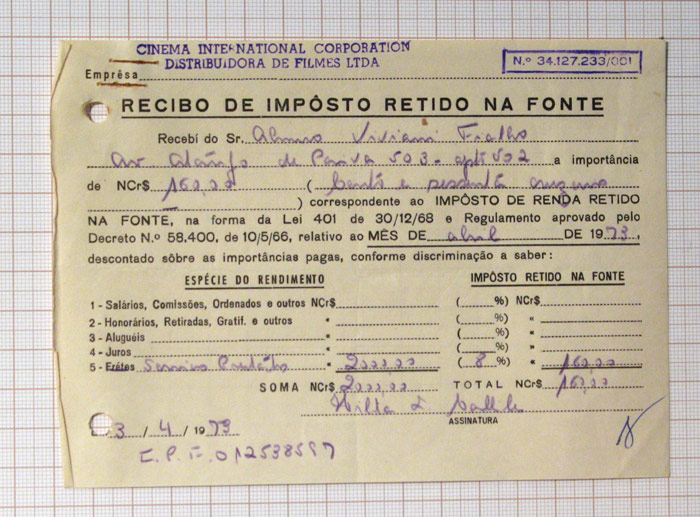 CINEMA INTERNATIONAL CORPORATION
DISTRIBUIDORA DE FILMES LTDA
N.º 34.127.233/001
Emprêsa
RECIBO DE IMPÔSTO RETIDO NA FONTE
Recebí do Sr. Viviani Fialho
Av de Paiva 503 - aptº 502 a importância
de NCr$ 160,00 ( cento e sessenta cruzeiros
) correspondente ao IMPÔSTO DE RENDA RETIDO
NA FONTE, na forma da Lei 401 de 30/12/68 e Regulamento aprovado pelo
Decreto N.º 58.400, de 10/5/66, relativo ao MÊS DE abril DE 1973,
descontado sôbre as importâncias pagas, conforme discriminação a saber:
ESPÉCIE DO RENDIMENTO IMPÔSTO RETIDO NA FONTE
1 - Salários, Comissões, Ordenados e outros NCr$ ( %) NCr$
2 - Honorários, Retiradas, Gratif. e outros " ( %) "
3 - Aluguéis " ( %) "
4 - Juros " ( %) "
5 - Frétes Serviços Prestados " 2000,00 ( 8 %) " 160,00
SOMA NCr$ 2000,00 TOTAL NCr$ 160,00
Hilda
ASSINATURA
3 / 4 / 1973
C.P.F. 012538597